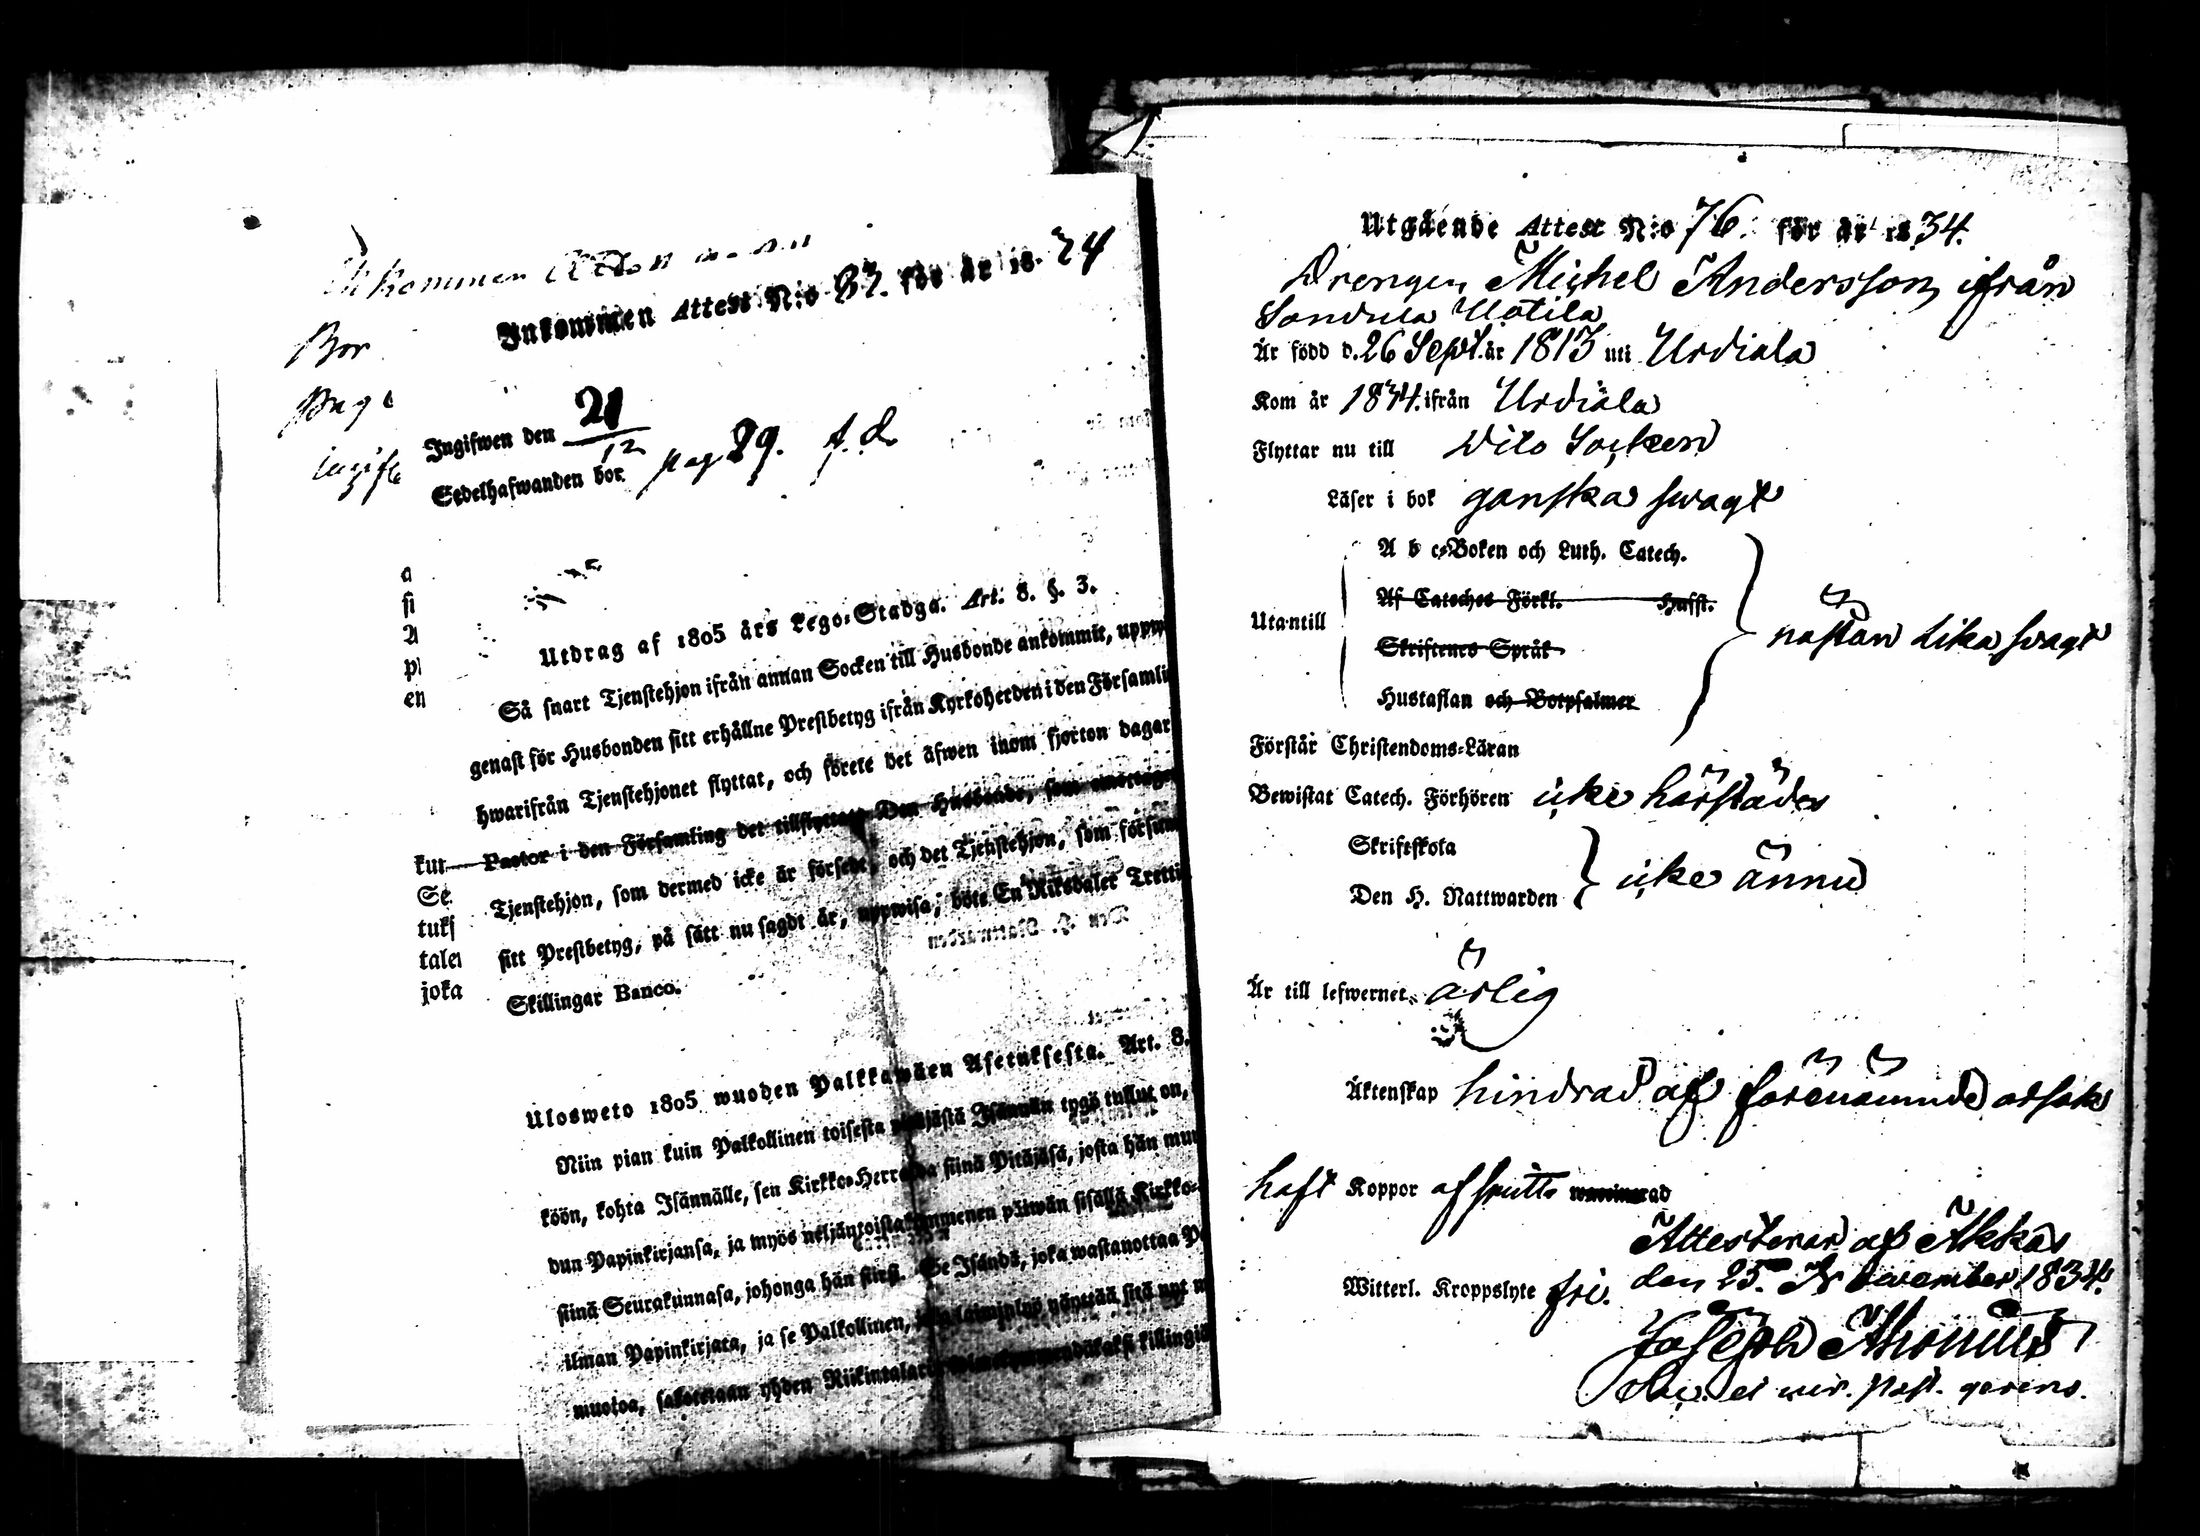 Inkommen Attest N:o 87. för år 18 34
Bor
pag
Ingifwen den 21/12
Sedelhafwanden bor pag 29. f. d.
a
si
A
pl
en
Utdrag af 1805 års Lego-Stadga. Art. 8. §. 3.
Så snart Tjenstehjon ifrån annan Socken till Husbonde ankommit, uppwi
genast för Husbonden sitt erhållne Prestbetyg ifrån Kyrkoherden i den Församli
hwarifrån Tjenstehjonet flyttat, och förete det äfwen inom fjorton dagar
Pastor i den Församling det tillflyttat. Den Husbonde, som emottager
Tjenstehjon, som dermed icke är försedt, och det Tjenstehjon, som försum
sitt Prestbetyg, på sätt nu sagdt är, uppwisa, böte En Riksdaler Tretti
Skillingar Banco.
kun
Se
tuks
taler
joka
Ulosweto 1805 wuoden Palkkawäen Asetuksesta. Art. 8.
Niin pian kuin Palkollinen toisesta pitäjästä Isännän tygö tullut on,
köön, kohta Isännälle, sen Kirkko-Herralda siinä Pitäjäsä, josta hän muu
dun Papinkirjansa, ja myös neljäntoistakymmenen päiwän sisällä Kirkko-
siinä Seurakunnasa, johonga hän siirsi. Se Isändä, joka wastanottaa Pa
ilman Papinkirjata, ja se Palkollinen, joka laiminlyö näyttää sitä nyt
muotoa, sakotetaan yhden Riikintalarin killingin
Utgående Attest N:o 76. för år 1834.
Drengen Michel Andersson ifrån
Sondula Uotila
Är född d. 26 Sept. år 1813 uti Urdiala
Kom år 1834. ifrån Urdiala
Flyttar nu till Wilo Socken
Läser i bok ganska swagt
A b c-Boken och Luth. Catech.
Af Cateches Förkl. Hufst.
Utantill
nästan lika swagt
Skriftenes Språk
Hustaflan och Botpsalmer
Förstår Christendoms-Läran
Bewistat Catech. Förhören icke härstädes
Skriftskola
icke ännu
Den H. Nattwarden
Är till lefwernet ärlig
Äktenskap hindrad af förenämnde orsak
haft Koppor
Attesterar af Akkas
den 25. November 1834.
Witterl. Kroppslyte fri.
Joseph
Sac. et vic. past. gerens.